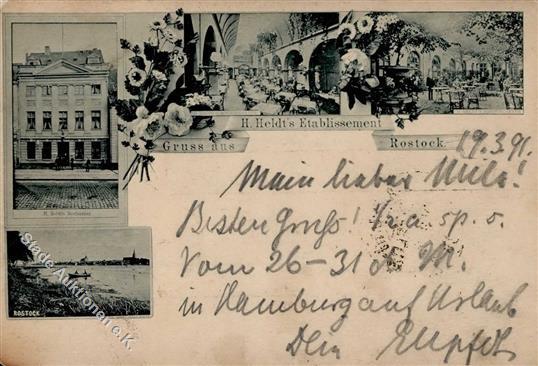 H. Heldt's Etablissement
Gruss aus Rostock.
19.3.91.
Mein lieber
Besten Gruß!
Vom 26-31 d. M.
in Hamburg auf Urlaub
Dein
H. Heldt's Restaurant
ROSTOCK
Stade Auktionen e.K.